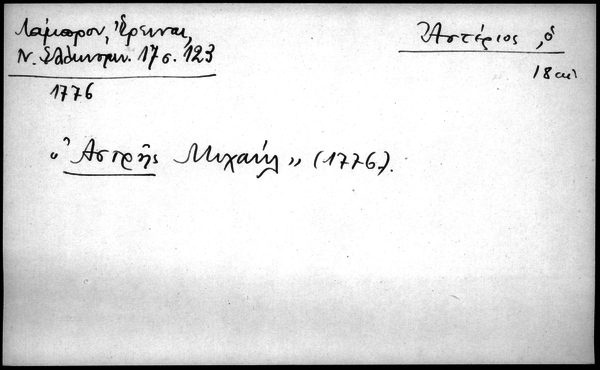 Λάμπρου, Ἔρευναι,
Ν. Ἑλληνομν. 17 σ. 123
1776
Ἀστέριος, ὁ
18 αἰ
„Ἀστρῆς Μιχαήλ” (1776).